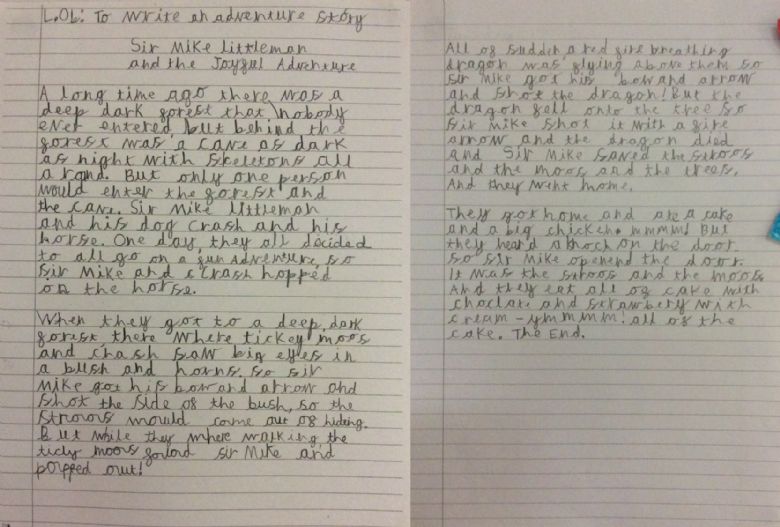 L.O: To write an adventure story
Sir Mike Littleman
and the Joyful Adventure
A long time ago there was a
deep dark forest that nobody
ever entered, but behind the
forest was a cave as dark
as night with skeletons all
a rond. But only one person
would enter the forest and
the cave. Sir Mike Littleman
and his dog Crash and his
horse. One day, they all decided
to all go on a fun Adventure, so
Sir Mike and Crash hopped
on the horse.
When they got to a deep, dark
forest, there where tickey moos
and Crash saw big eyes in
a bush and horns. So sir
Mike got his bow and arrow and
shot the side of the bush, so the
would come out of hiding.
But while they where walking the
ticky moos sir Mike and
popped out!
All of sudden a red fire breathing
dragon was flying above them so
sir Mike got his bow and arrow
and shot the dragon! But the
dragon fell onto the tree so
Sir Mike shot it with a fire
arrow and the dragon died
and Sir Mike saved the stroos
and the moos and the trees.
And they went home.
They got home and ate a cake
and a big chicken. mmmm! But
they heard a knock on the door.
So sir Mike openend the door.
It was the stroos and the moos.
And they eat all of cake with
choclate and strawbery with
cream - ymmmm! all of the
cake. The End.